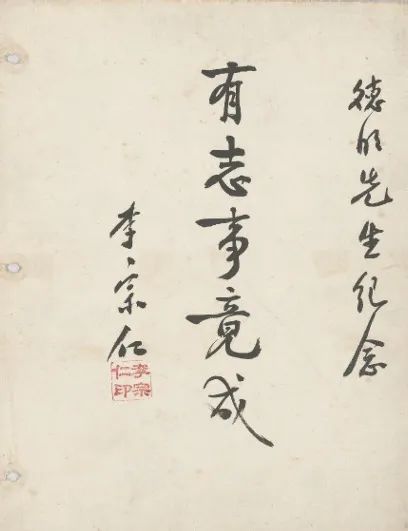 德先生紀念
有志事竟成
李宗仁
李宗
仁印